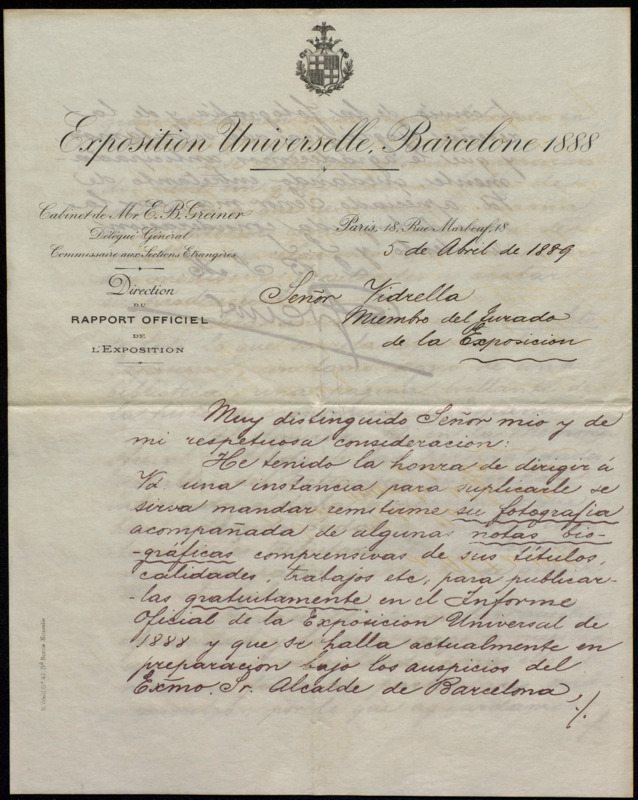 Exposition Universelle, Barcelone 1888
Cabinet de Mr. E. B. Greiner
Délégué Général
Commissaire aux Sections Etrangères
Direction
DU
RAPPORT OFFICIEL
DE
L'EXPOSITION
Paris, 18, Rue Marbeuf, 18
5 de Abril de 1889
Señor Vidrella
Miembro del Jurado
de la Exposicion
Muy distinguido Señor mio y de
mi respetuosa consideracion:
He tenido la honra de dirigir á
Vd una instancia para suplicarle se
sirva mandar remitirme su fotografia
acompañada de algunas notas bio-
-gráficas comprensivas de sus títulos,
calidades, trabajos etc, para publicar-
-las gratuitamente en el Informe
Oficial de la Exposicion Universal de
1888 y que se halla actualmente en
preparacion bajo los auspicios del
Exmo. Sr. Alcalde de Barcelona,
./.